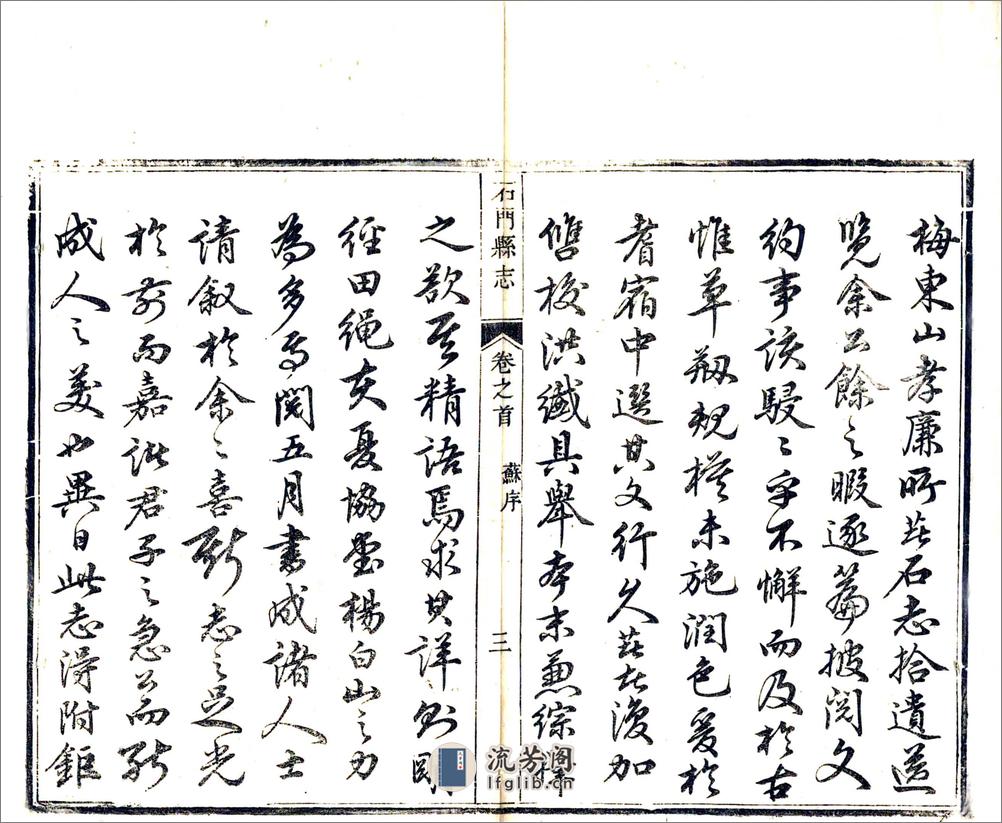 梅東山孝廉所著石志拾遺送
覽余公餘之暇逐篇披閱文
約事該駸々乎不懈而及於古
惟草剏規模未施潤色爰於
耆宿中選其文行久著者復加
讐校洪纖具舉本末兼綜擇
石門縣志 卷之首 蘇序 三
之欲其精語焉求其詳則
徑田繩夫夏協堂楊白山之力
為多焉閱五月書成諸人士
請叙於余々喜斯志之足光
於前而嘉諸君子之急公而能
成人之美也異日此志得附鉅
流芳阁
lfglib.com